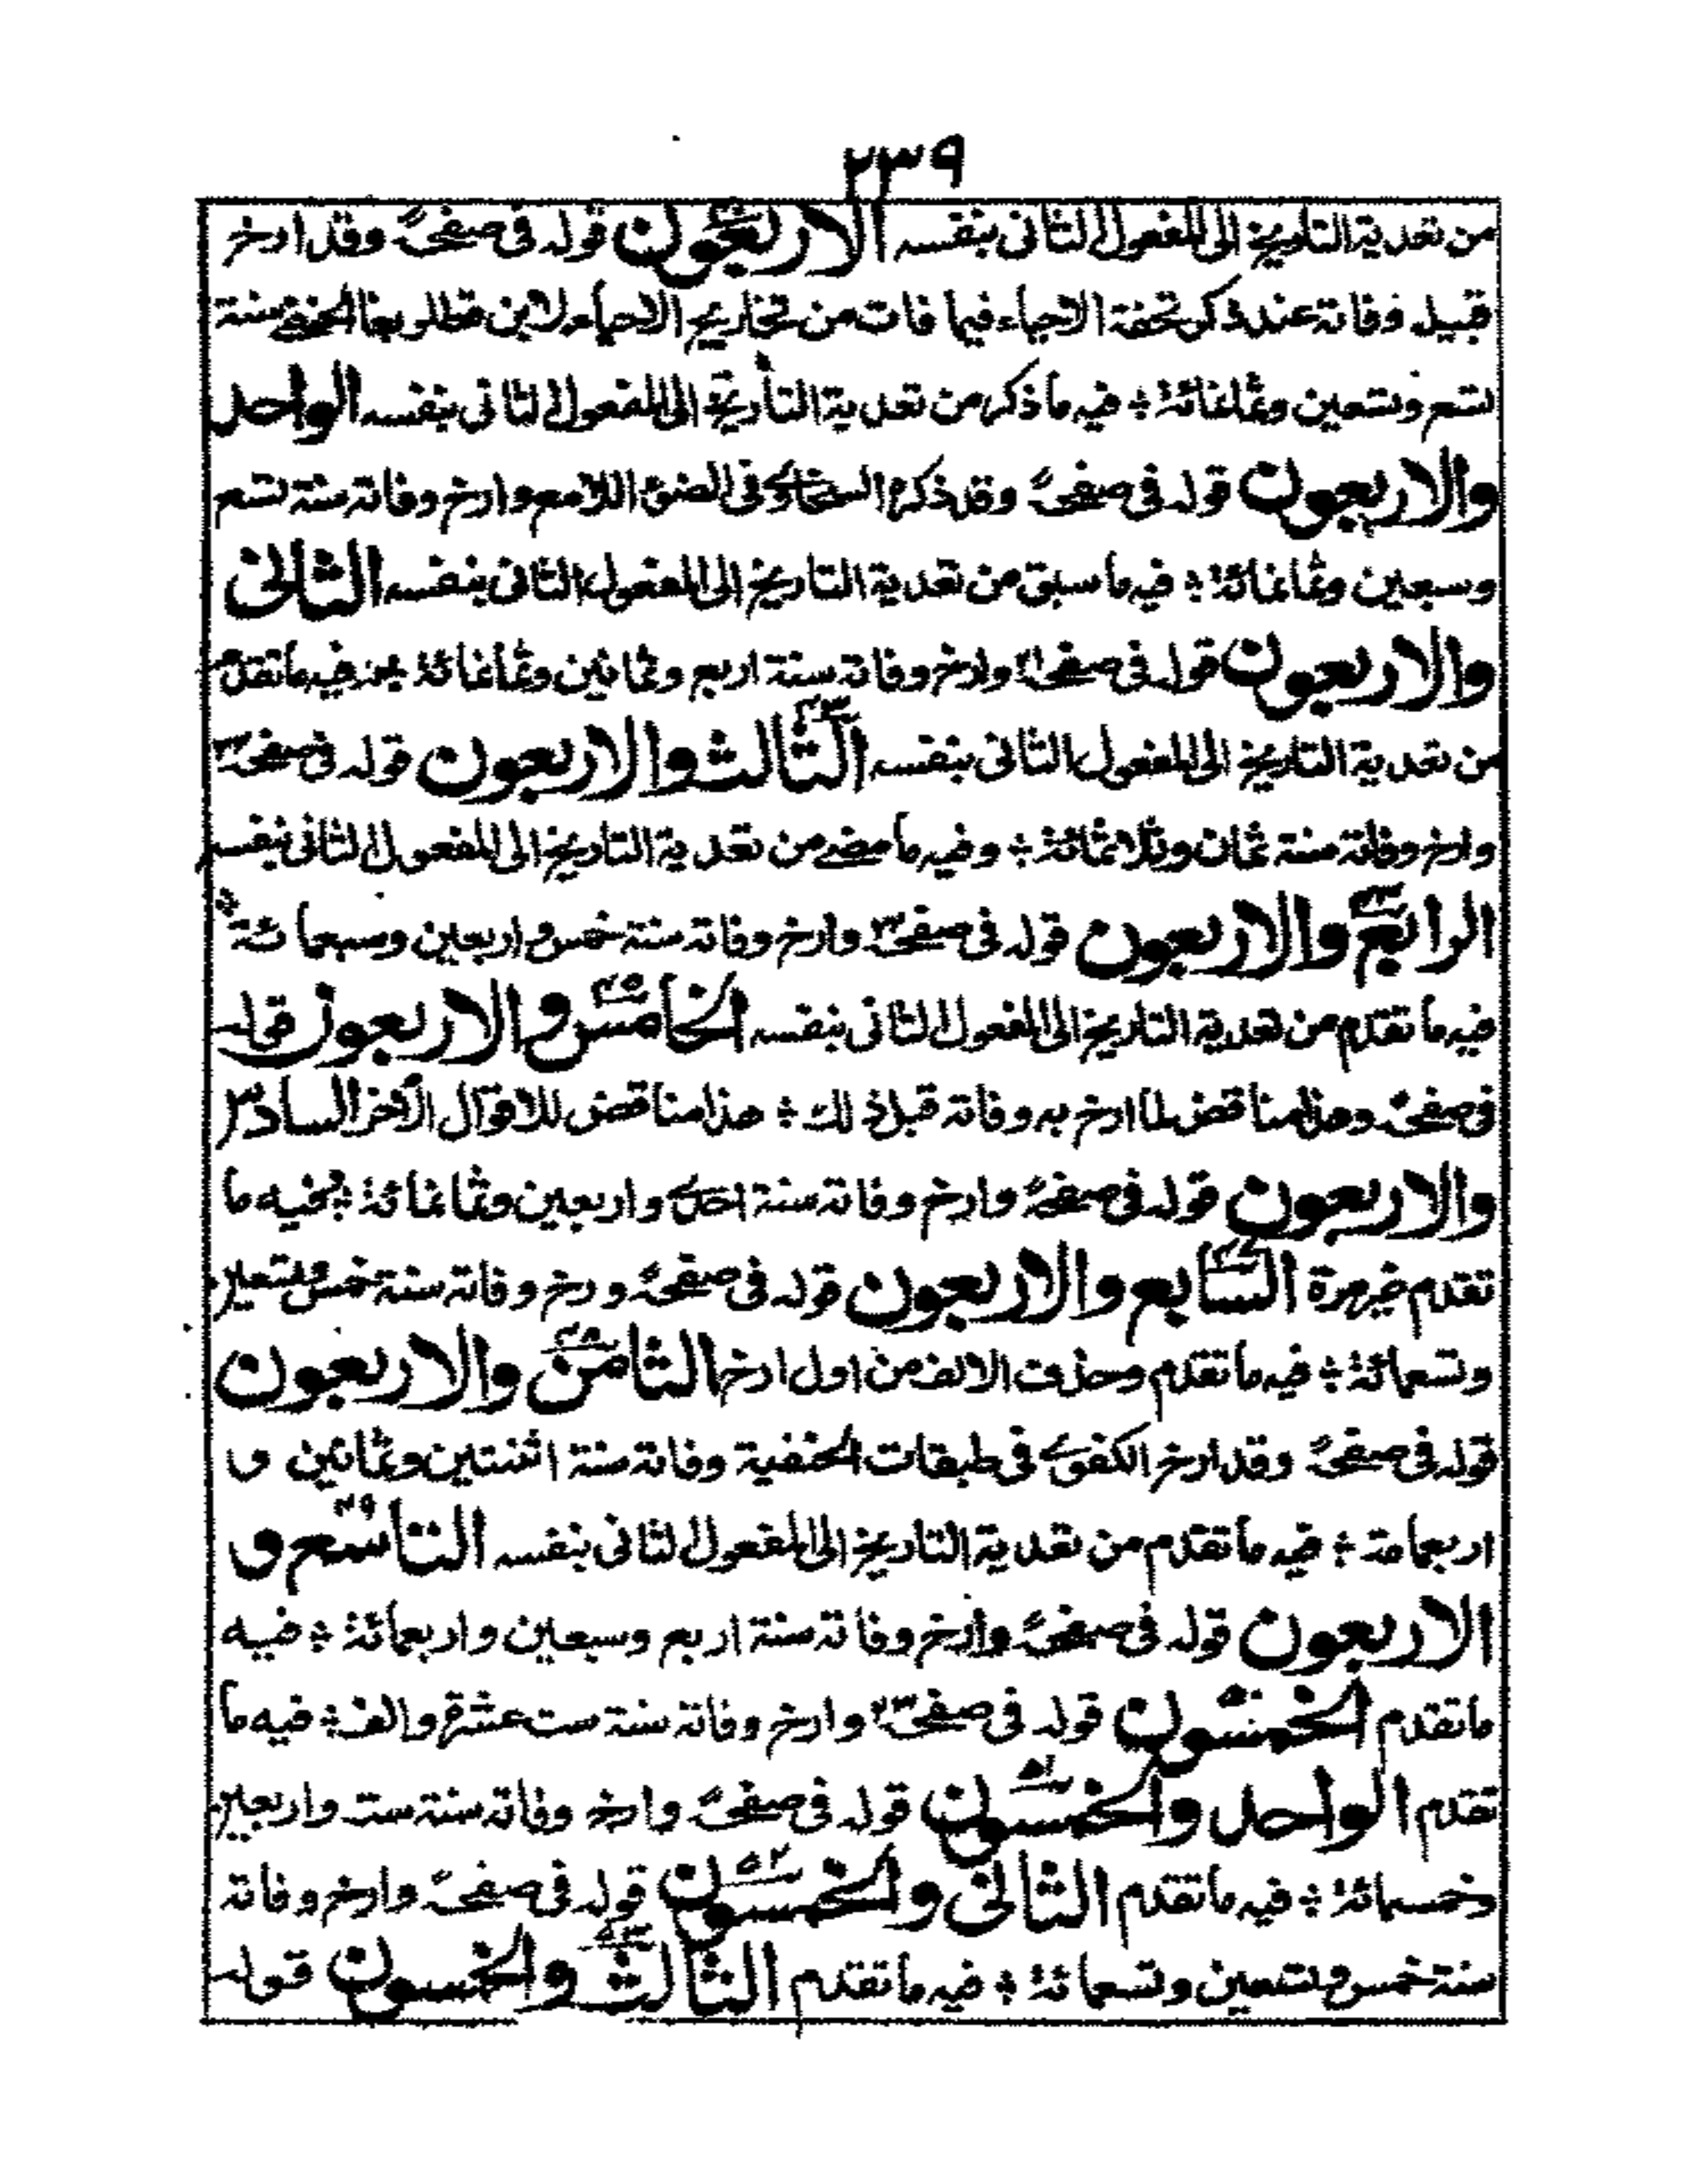 ٢٣٩
من تعدية التاريخ الى المفعول الثانى بنفسه الاربعون قوله فى صفحة وقد ارخ
قبيل وفاته عند ذكر تحفة الاحياء فيما فات من تخاريج الاحياء لابن قطلوبغا الحنفى سنة
تسع وتسعين وثمانمائة ؛ فيه ما ذكر من تعدية التأريخ الى المفعول الثانى بنفسه الواحد
والاربعون قوله فى صفحة وقد ذكره السخاوى فى الضوء اللامع وارخ وفاته سنة تسع
وسبعين وثمانمائة ؛ فيه ما سبق من تعدية التاريخ الى المفعول الثانى بنفسه الثانى
والاربعون قوله فى صفحة وارخ وفاته سنة اربع وثمانين وثمانمائة فيه ما تقدم
من تعدية التاريخ الى المفعول الثانى بنفسه الثالث والاربعون قوله فى صفحة
وارخ وفاته سنة ثمان وثلاثمائة ؛ وفيه ما مضى من تعدية التاريخ الى المفعول الثانى بنفسه
الرابع والاربعون قوله فى صفحة وارخ وفاته سنة خمس واربعين وسبعمائة ؛
فيه ما تقدم من تعدية التاريخ الى المفعول الثانى بنفسه الخامس والاربعون قوله
فى صفحة وهذا مناقض لما ارخ به وفاته قبل ذلك ؛ هذا مناقض للاقوال الأخر السادس
والاربعون قوله فى صفحة وارخ وفاته سنة احدى واربعين وثمانمائة ؛ فيه ما
تقدم غير مرة السابع والاربعون قوله فى صفحة ورخ وفاته سنة خمس وتسعين
وتسعمائة ؛ فيه ما تقدم وحذفت الالف من اول ارخ الثامن والاربعون
قوله فى صفحة وقد ارخ الكفوى فى طبقات الحنفية وفاته سنة اثنتين وثمانين و
اربعمائة ؛ فيه ما تقدم من تعدية التاريخ الى المفعول الثانى بنفسه التاسع و
الاربعون قوله فى صفحة وارخ وفاته سنة اربع وسبعين واربعمائة ؛ فيه
ما تقدم الخمسون قوله فى صفحة وارخ وفاته سنة ست عشرة والف ؛ فيه ما
تقدم الواحد والخمسون قوله فى صفحة وارخ وفاته سنة ست واربعين
وخمسمائة ؛ فيه ما تقدم الثانى والخمسون قوله فى صفحة وارخ وفاته
سنة خمس وتسعين وتسعمائة ؛ فيه ما تقدم الثالث والخمسون قوله